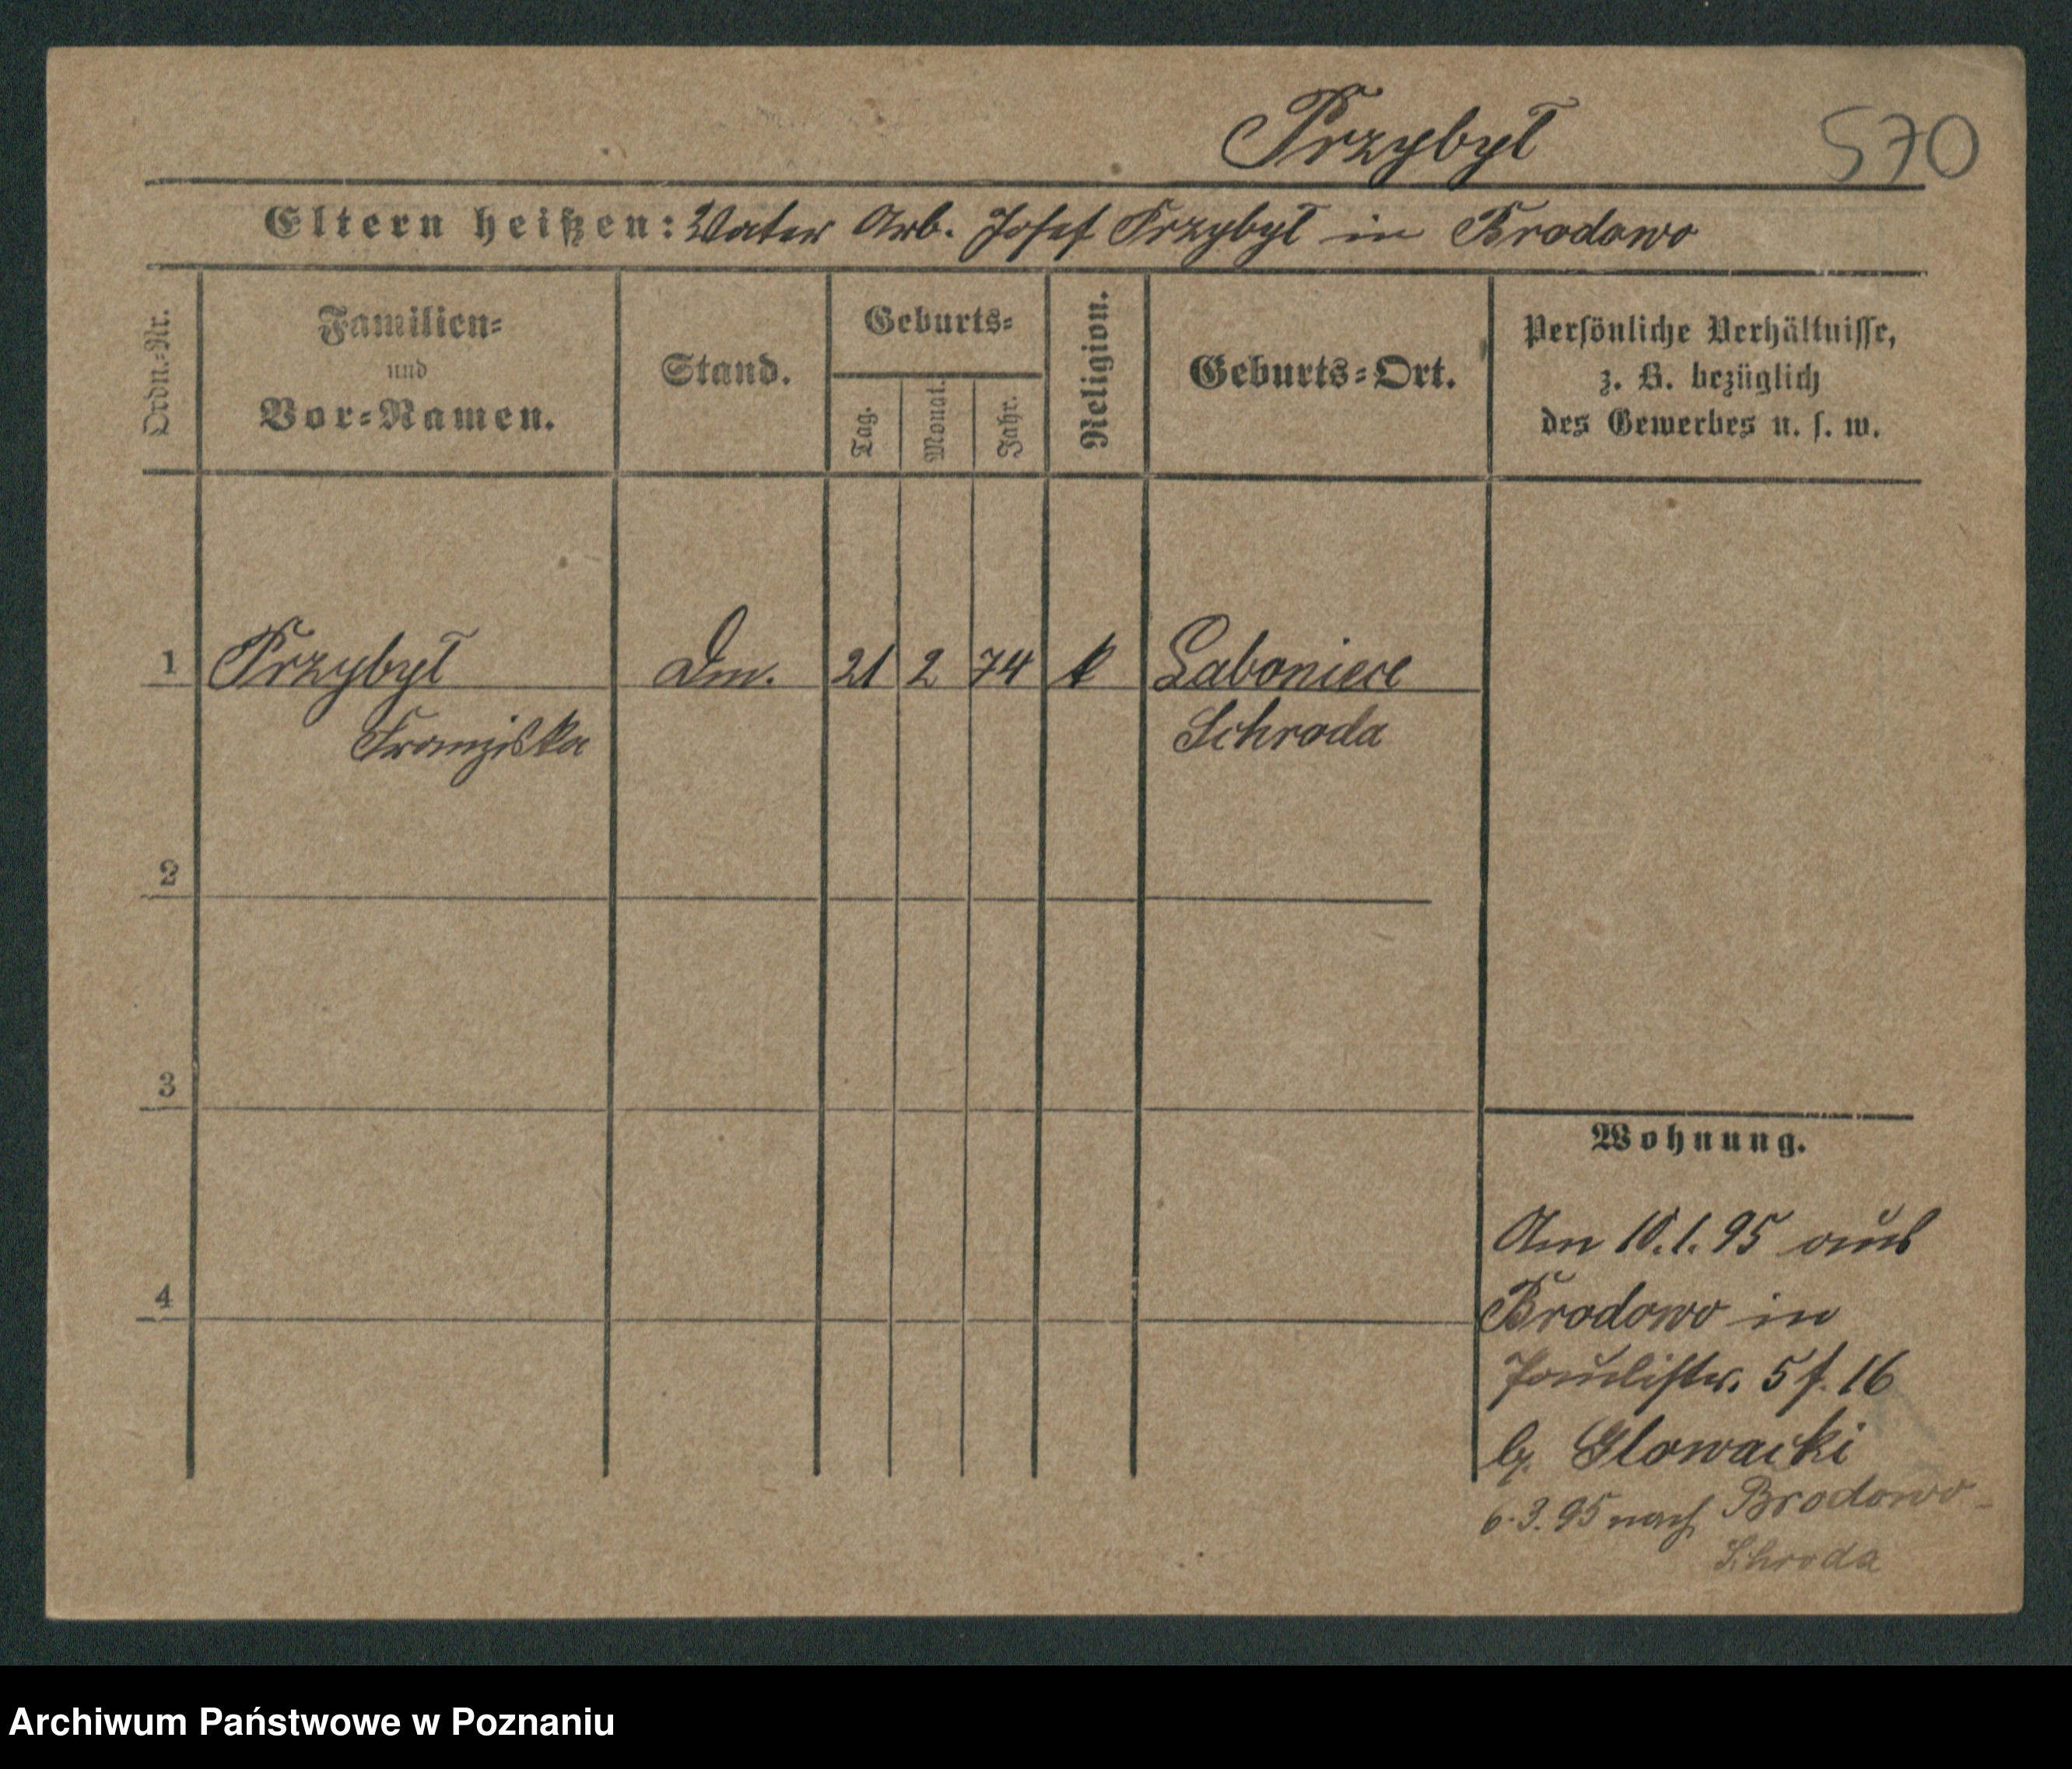 Przybyl 570
Eltern heißen: Vater Arb. Josef Przybyl in Brodowo
Ordn.-Nr.
Familien-
und
Vor-Namen.
Stand.
Geburts-
Tag.
Monat.
Jahr.
Religion.
Geburts-Ort.
Persönliche Verhältnisse,
z. B. bezüglich
des Gewerbes u. s. w.
1 Przybyl Dm. 21 2 74 k Laboniec
Franziska Schroda
2
3
4
Wohnung.
Am 10.1.95 aus
Brodowo in
Paulistr. 5 f. 16
b. Glowacki
6.3.95 nach Brodowo-
Schroda
Archiwum Państwowe w Poznaniu